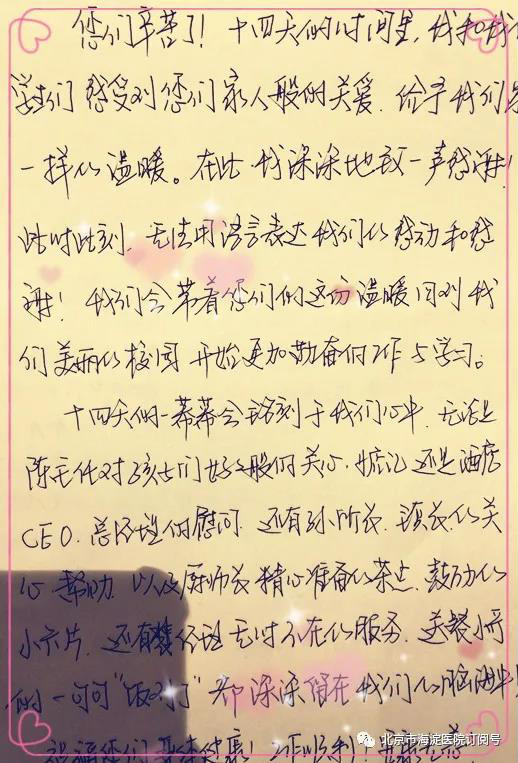 您们辛苦了！十四天的时间里，我和我
学生们感受到您们家人般的关爱，给予我们
一样的温暖。在此我深深地致一声感谢！
此时此刻，无法用语言表达我们的感动和感
谢！我们会带着您们的这份温暖回到我
们美丽的校园开始更加勤奋的工作与学习。
十四天的一幕幕会铭刻于我们心中，无论是
陈主任对孩子们母般的关心、惦记还是酒店
CEO、总经理的慰问，还有孙所长、镇长的关
心帮助，以及厨师长精心准备的茶点、鼓励的
小卡片，还有经理无时不在的服务，送餐小哥
的一句句“饭到了”都深深留在我们的脑海中！
祝福您们身体健康，工作顺利！
北京市海淀医院订阅号